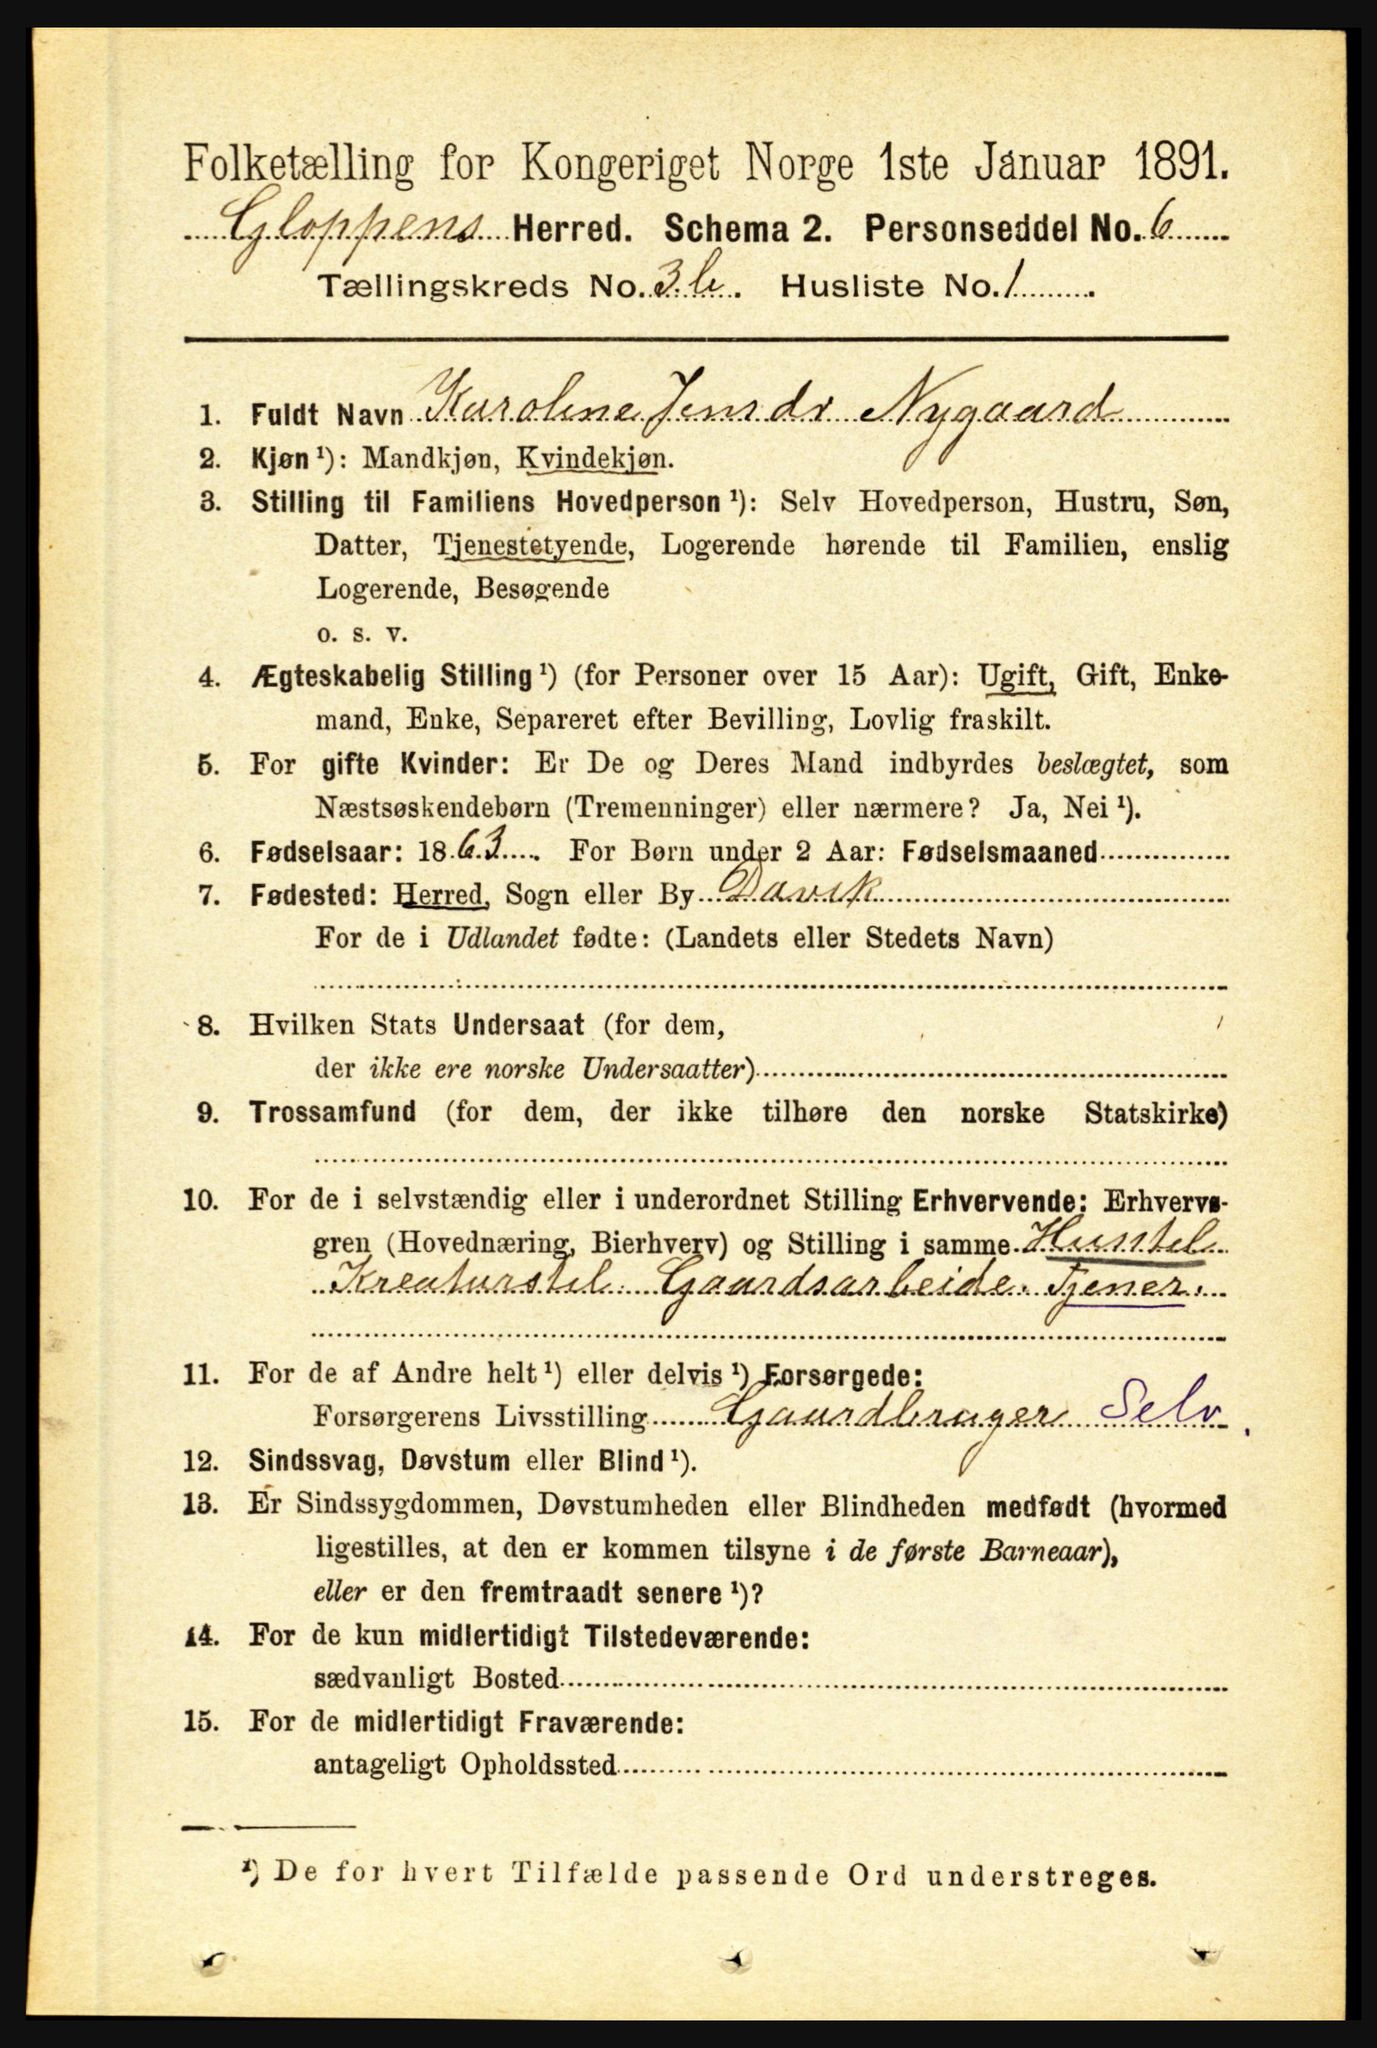 Folketælling for Kongeriget Norge 1ste Januar 1891.
Gloppens Herred. Schema 2. Personseddel No. 6
Tællingskreds No. 3b. Husliste No. 1.
1. Fuldt Navn Karoline Jensdr Nygaard
2. Kjøn ¹): Mandkjøn, Kvindekjøn.
3. Stilling til Familiens Hovedperson ¹): Selv Hovedperson, Hustru, Søn,
Datter, Tjenestetyende, Logerende hørende til Familien, enslig
Logerende, Besøgende
o. s. v.
4. Ægteskabelig Stilling ¹) (for Personer over 15 Aar): Ugift, Gift, Enke-
mand, Enke, Separeret efter Bevilling, Lovlig fraskilt.
5. For gifte Kvinder: Er De og Deres Mand indbyrdes beslægtet, som
Næstsøskendebørn (Tremenninger) eller nærmere? Ja, Nei ¹).
6. Fødselsaar: 1863. For Børn under 2 Aar: Fødselsmaaned
7. Fødested: Herred, Sogn eller By Davik
For de i Udlandet fødte: (Landets eller Stedets Navn)
8. Hvilken Stats Undersaat (for dem,
der ikke ere norske Undersaatter)
9. Trossamfund (for dem, der ikke tilhøre den norske Statskirke)
10. For de i selvstændig eller i underordnet Stilling Erhvervende: Erhvervs-
gren (Hovednæring, Bierhverv) og Stilling i samme. Hustel
Kreaturstel Gaardsarbeide. Tjener.
11. For de af Andre helt ¹) eller delvis ¹) Forsørgede:
Forsørgerens Livsstilling Gaardbruger Selv.
12. Sindssvag, Døvstum eller Blind ¹).
13. Er Sindssygdommen, Døvstumheden eller Blindheden medfødt (hvormed
ligestilles, at den er kommen tilsyne i de første Barneaar),
eller er den fremtraadt senere ¹)?
14. For de kun midlertidigt Tilstedeværende:
sædvanligt Bosted
15. For de midlertidigt Fraværende:
antageligt Opholdssted
¹) De for hvert Tilfælde passende Ord understreges.